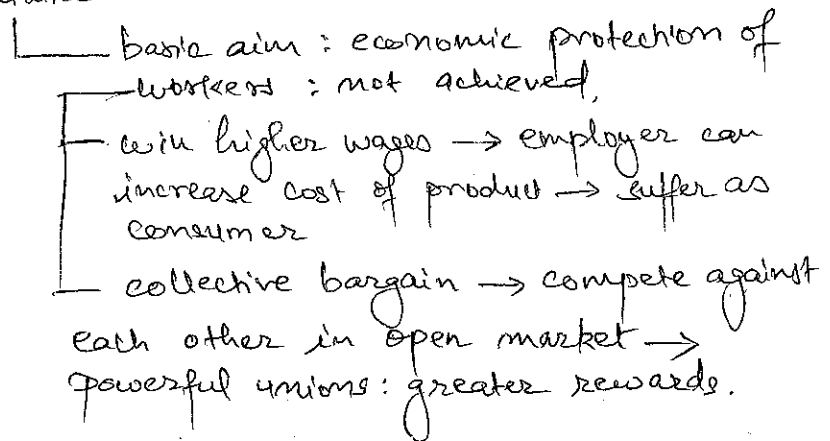 basic aim : economic protection of
workers : not achieved.
win higher wages → employer can
increase cost of product → suffer as
consumer
collective bargain → compete against
each other in open market →
powerful unions : greater rewards.